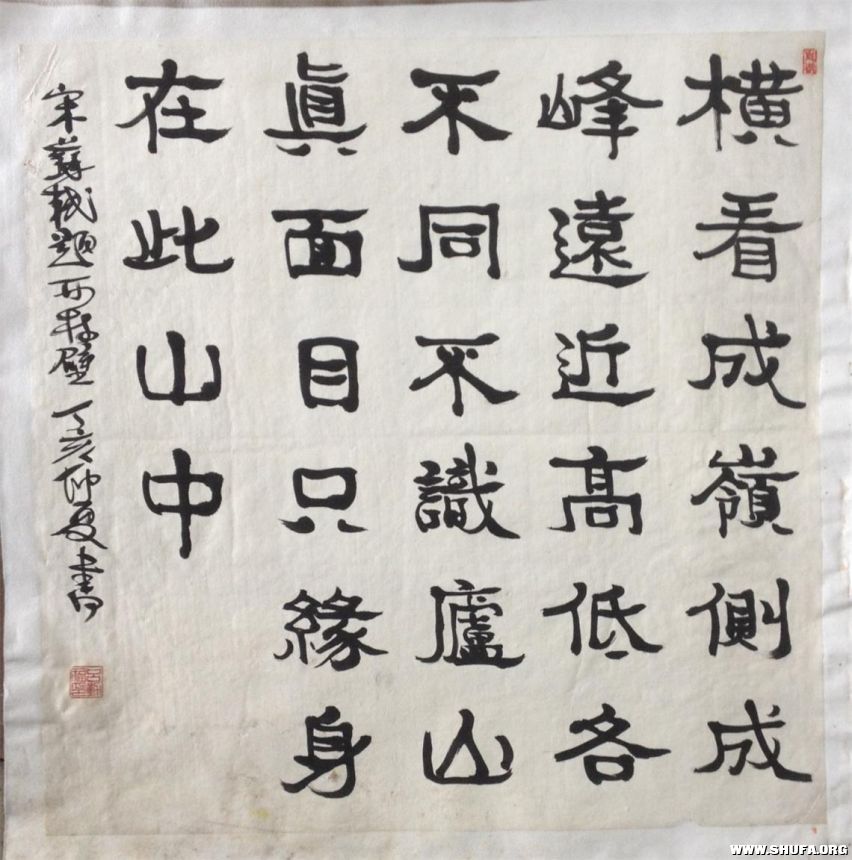 橫看成嶺側成
峰遠近高低各
不同不識廬山
眞面目只緣身
在此山中
宋蘇軾題西林壁 丁亥仲夏書
WWW.SHUFA.ORG